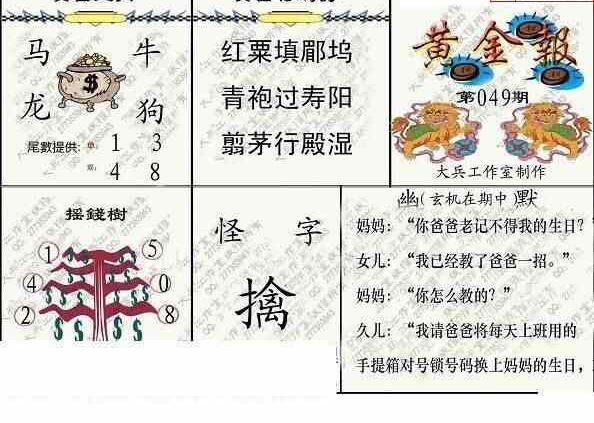 马 牛
龙 狗
尾數提供: 单: 1 3
双: 4 8
红粟填郿坞
青袍过寿阳
翦茅行殿湿
黄金報
第049期
大兵工作室制作
摇錢樹
1 5
4 0
2 8
怪 字
擒
幽(玄机在期中)默
妈妈:“你爸爸老记不得我的生日?”
女儿:“我已经教了爸爸一招。”
妈妈:“你怎么教的?”
久儿:“我请爸爸将每天上班用的
手提箱对号锁号码换上妈妈的生日,